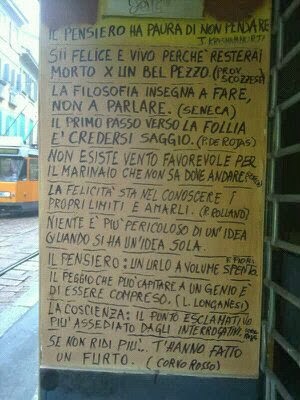 IL PENSIERO HA PAURA DI NON PENSARE
SII FELICE E VIVO PERCHE' RESTERAI
MORTO X UN BEL PEZZO. (PROV. SCOZZESE)
LA FILOSOFIA INSEGNA A FARE,
NON A PARLARE. (SENECA)
IL PRIMO PASSO VERSO LA FOLLIA
E' CREDERSI SAGGIO. (F. DE ROJAS)
NON ESISTE VENTO FAVOREVOLE PER
IL MARINAIO CHE NON SA DOVE ANDARE
LA FELICITA' STA NEL CONOSCERE I
PROPRI LIMITI E AMARLI. (R. ROLLAND)
NIENTE E' PIU' PERICOLOSO DI UN'IDEA
QUANDO SI HA UN'IDEA SOLA.
IL PENSIERO: UN URLO A VOLUME SPENTO.
IL PEGGIO CHE PUO' CAPITARE A UN GENIO E'
DI ESSERE COMPRESO. (L. LONGANESI)
LA COSCIENZA: IL PUNTO ESCLAMATIVO
PIU' ASSEDIATO DAGLI INTERROGATIVI.
SE NON RIDI PIU'... T'HANNO FATTO
UN FURTO. (CORVO ROSSO)